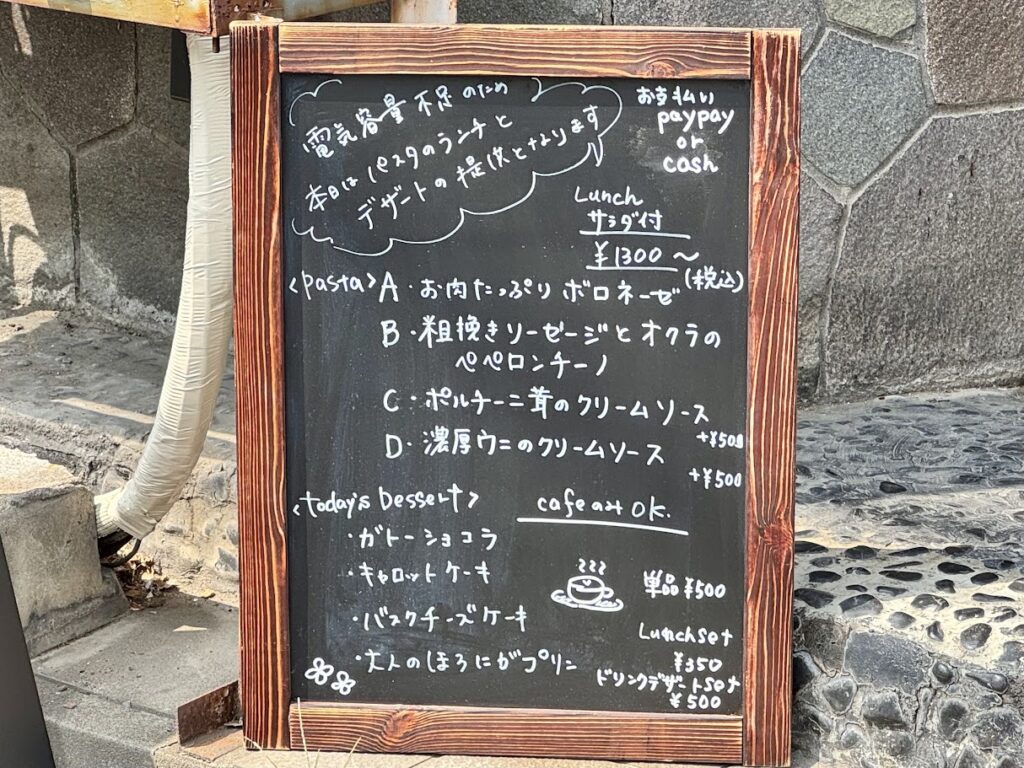 電気容量不足のため
本日はパスタのランチと
デザートの提供となります
お支払い
paypay
or
cash
Lunch
サラダ付
¥1300〜
(税込)
<pasta> A・お肉たっぷりボロネーゼ
B・粗挽きソーセージとオクラの
ペペロンチーノ
C・ポルチーニ茸のクリームソース
+¥500
D・濃厚ウニのクリームソース
+¥500
<today's Dessert>
・ガトーショコラ
・キャロットケーキ
・バスクチーズケーキ
・大人のほろにがプリン
cafeのみOK.
単品¥500
Lunchset
¥350
ドリンクデザートset
¥500